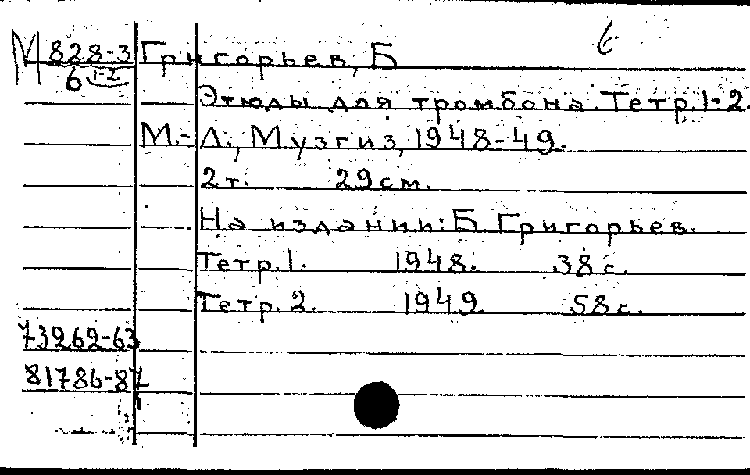 б
М 828-3 Григорьев, Б
6 1-2
Этюды для тромбона. Тетр.1-2.
М.-Л., Музгиз, 1948-49.
2т. 29см.
На издании: Б Григорьев.
Тетр.1. 1948. 38с.
Тетр.2. 1949. 58с.
73962-63
81786-87